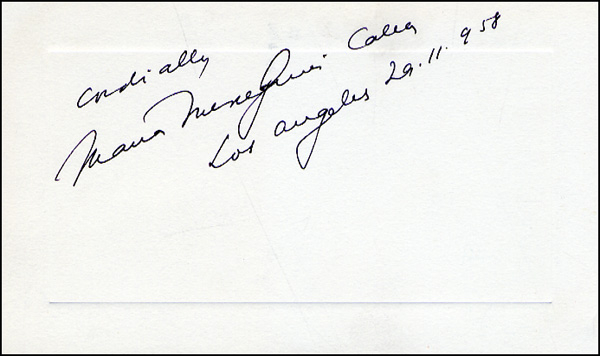 cordially
Maria Meneghini Callas
Los Angeles 29.11.958